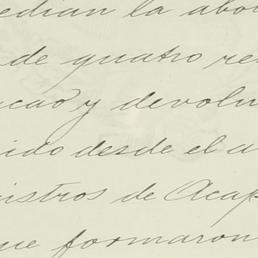 edian la abo
de quatro re
cao y devolu
ido desde el a
istros de Acap
que formaron